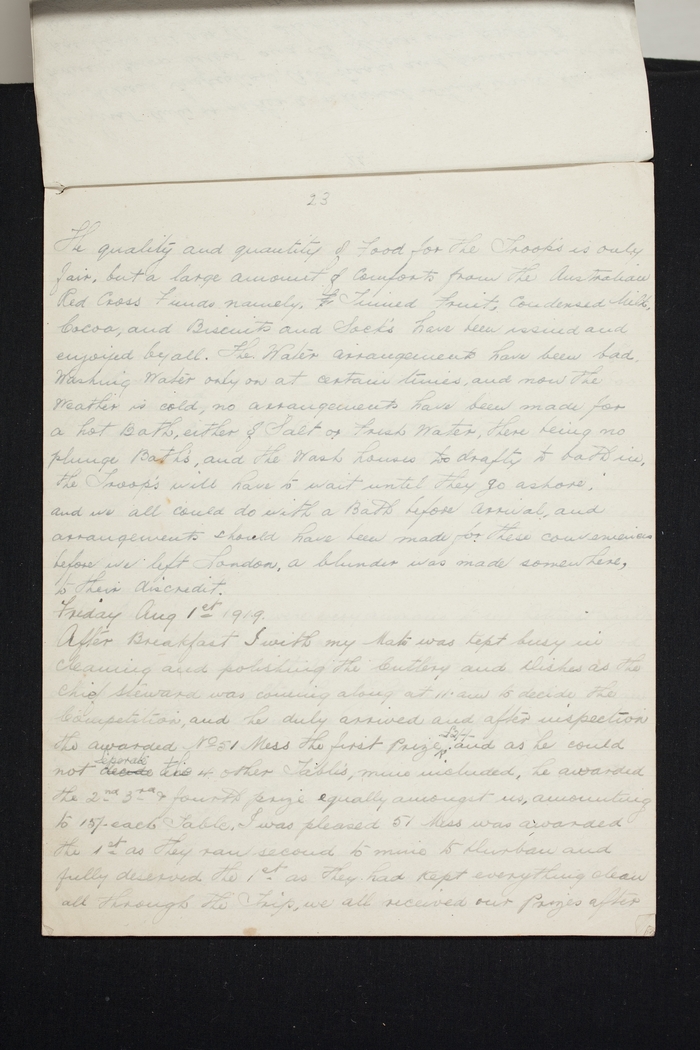 23
The quality and quantity of Food for the Troops is only
fair, but a large amount of Comforts from the Australian
Red Cross Funds namely. Tinned Fruit, Condensed Milk,
Cocoa, and Biscuits and Socks have been issued and
enjoyed by all. The Water arrangements have been bad.
Washing Water only on at certain times, and now the
Weather is cold, no arrangements have been made for
a hot Bath, either of Salt or Fresh Water, there being no
plunge Baths, and the Wash houses to drafty to bath in,
the Troops will have to wait until they go ashore,
and we all could do with a Bath before arrival, and
arrangements should have been made for these conveniences
before we left London, a blunder was made somewhere,
to their discredit.
Friday Aug 1st 1919.
After Breakfast I with my Mate was kept busy in
cleaning and polishing the Cutlery and Dishes as the
Chief Steward was coming along at 11 am to decide the
Competition, and he duly arrived and after inspection
the awarded No 51 Mess the first Prize, and as he could
not decide separate the 4 other Tables, mine included, he awarded
the 2nd 3rd & fourth prize equally amongst us, amounting
to 15/- each Table. I was pleased 51 Mess was awarded
the 1st as they ran second to mine to Durban and
fully deserved the 1st as they had kept everything clean
all through the Trip, we all received our Prizes after